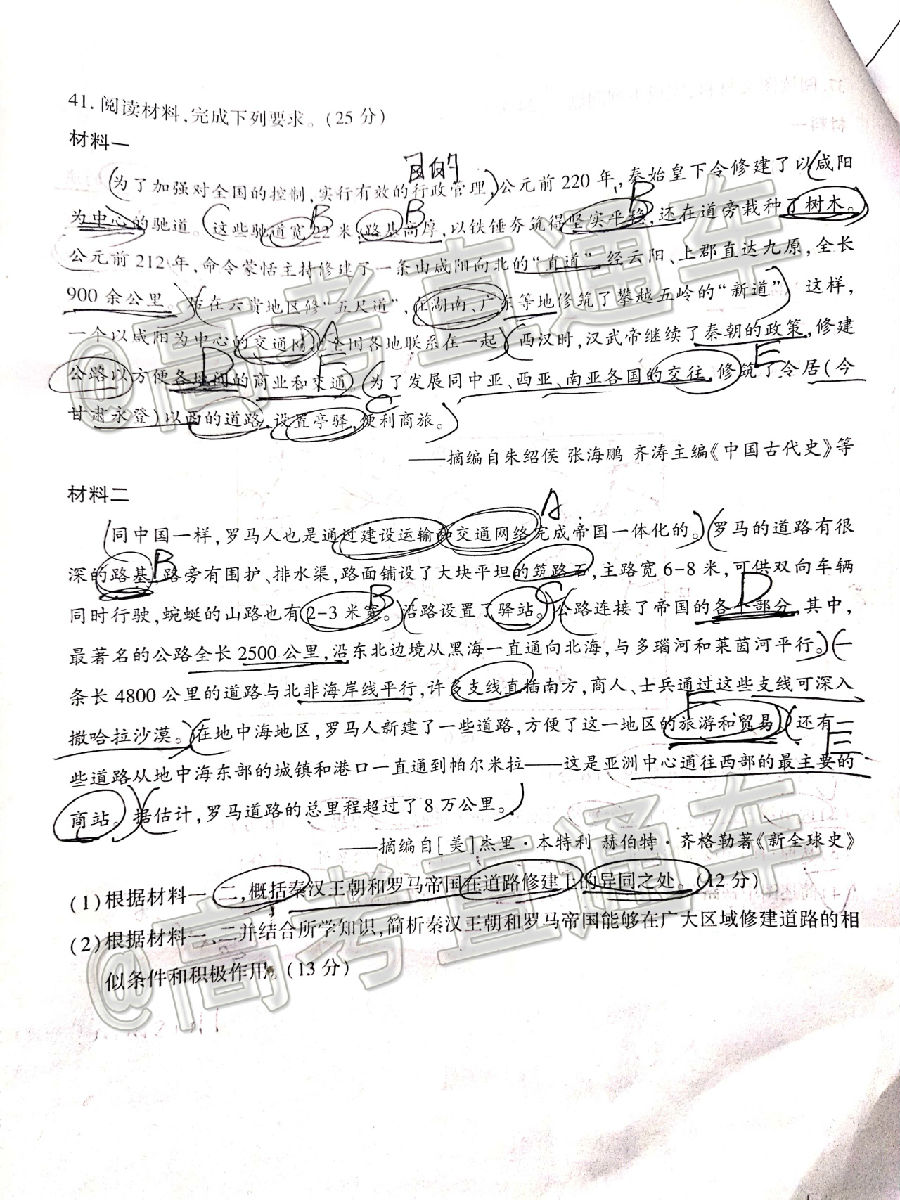 41. 阅读材料,完成下列要求。(25分)
材料一
目的
为了加强对全国的控制,实行有效的行政管理,公元前220年,秦始皇下令修建了以咸阳
为中心的驰道。这些驰道宽22米,路基高厚,以铁锤夯筑得坚实平稳,还在道旁栽种了树木。
公元前212年,命令蒙恬主持修建了一条由咸阳向北的“直道”,经云阳、上郡直达九原,全长
900余公里。在云贵地区修“五尺道”,在湖南、广东等地修筑了攀越五岭的“新道”。这样,
一个以咸阳为中心的交通网把全国各地联系在一起。西汉时,汉武帝继续了秦朝的政策,修建
公路以方便各地间的商业和交通。为了发展同中亚、西亚、南亚各国的交往,修筑了令居(今
甘肃永登)以西的道路,设置亭驿,便利商旅。
——摘编自朱绍侯 张海鹏 齐涛主编《中国古代史》等
材料二
同中国一样,罗马人也是通过建设运输和交通网络完成帝国一体化的。罗马的道路有很
深的路基,路旁有围护、排水渠,路面铺设了大块平坦的筑路石,主路宽6-8米,可供双向车辆
同时行驶,蜿蜒的山路也有2-3米宽。沿路设置了驿站。公路连接了帝国的各个部分,其中,
最著名的公路全长2500公里,沿东北边境从黑海一直通向北海,与多瑙河和莱茵河平行。一
条长4800公里的道路与北非海岸线平行,许多支线直插南方,商人、士兵通过这些支线可深入
撒哈拉沙漠。在地中海地区,罗马人新建了一些道路,方便了这一地区的旅游和贸易。还有一
些道路从地中海东部的城镇和港口一直通到帕尔米拉——这是亚洲中心通往西部的最主要的
商站。据估计,罗马道路的总里程超过了8万公里。
——摘编自[美]杰里·本特利 赫伯特·齐格勒著《新全球史》
(1)根据材料一、二,概括秦汉王朝和罗马帝国在道路修建上的异同之处。(12分)
(2)根据材料一、二并结合所学知识,简析秦汉王朝和罗马帝国能够在广大区域修建道路的相
似条件和积极作用。(13分)
@高考直通车
@高考直通车